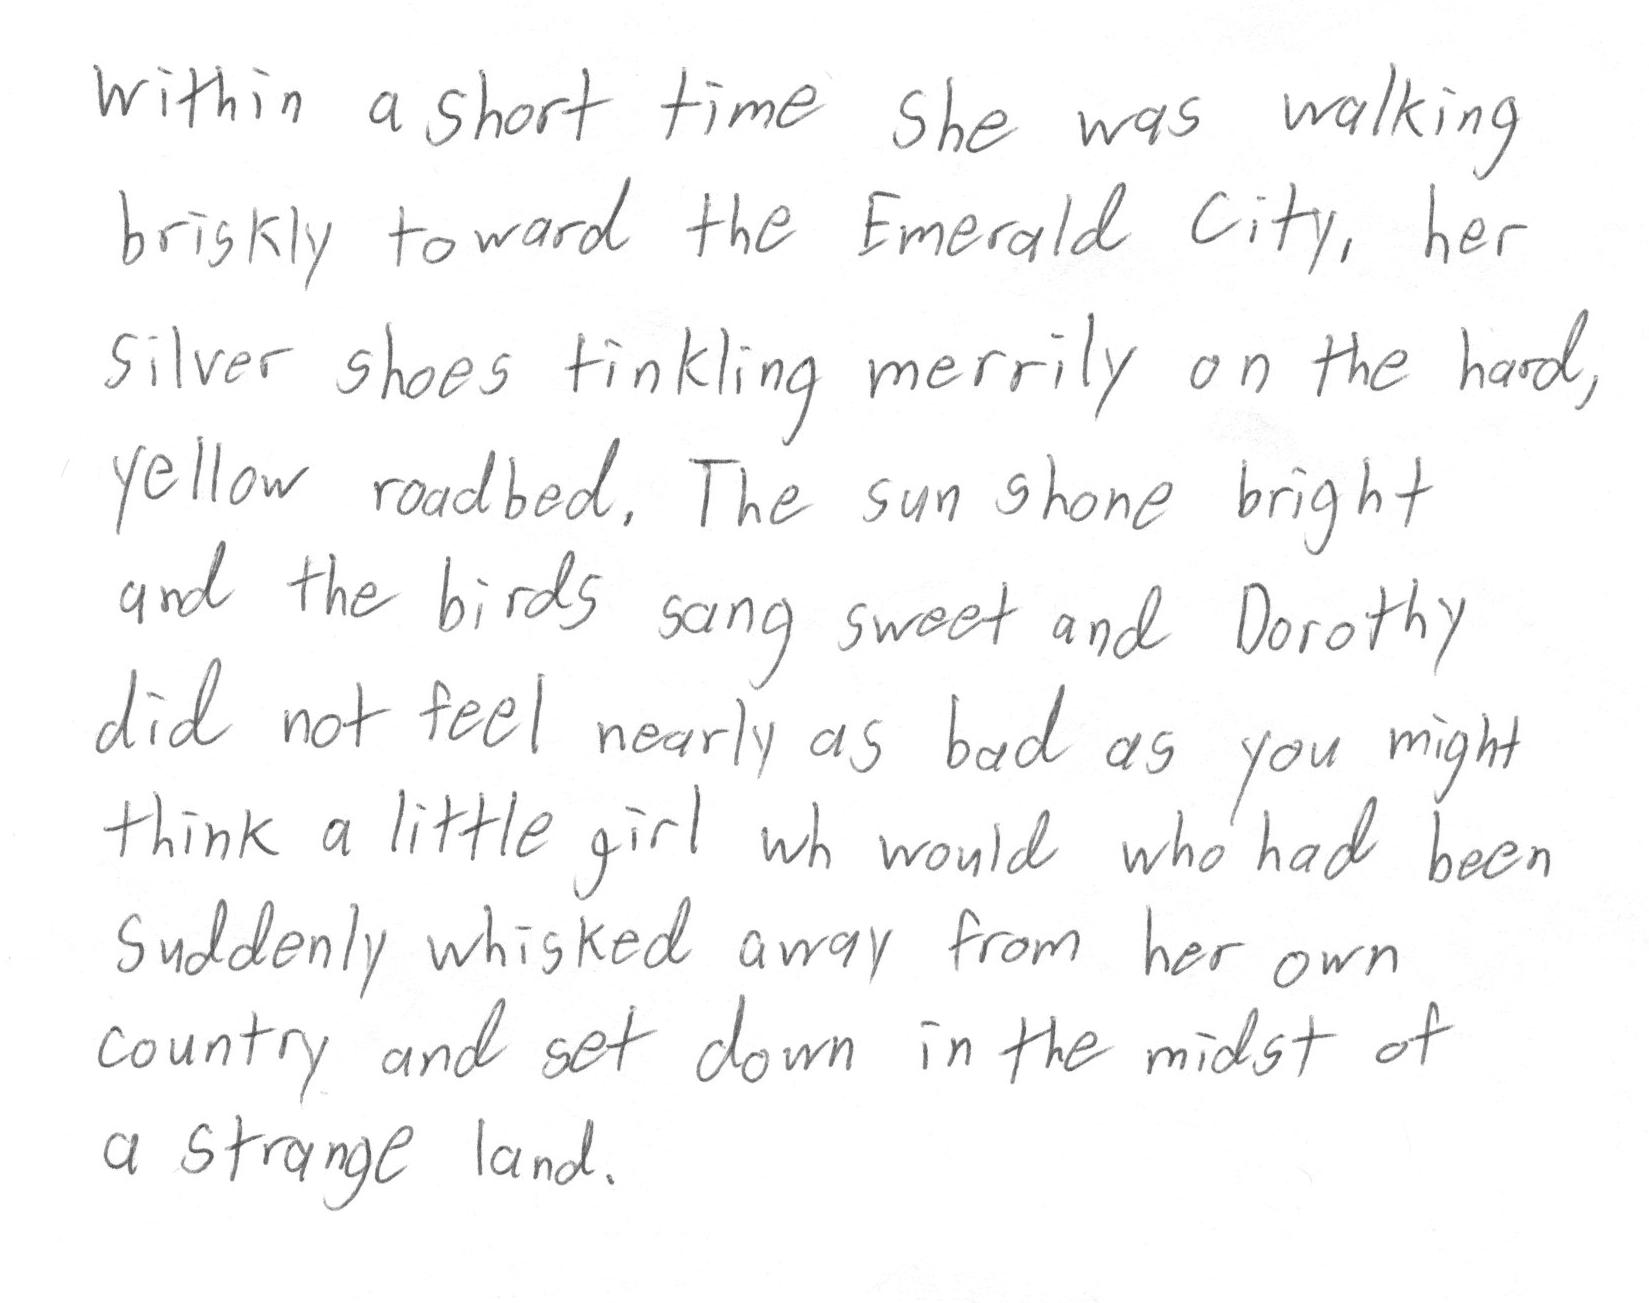 Within a short time she was walking
briskly toward the Emerald City, her
Silver shoes tinkling merrily on the hard,
yellow roadbed. The sun shone bright
and the birds sang sweet and Dorothy
did not feel nearly as bad as you might
think a little girl wh would who had been
suddenly whisked away from her own
country and set down in the midst of
a strange land.